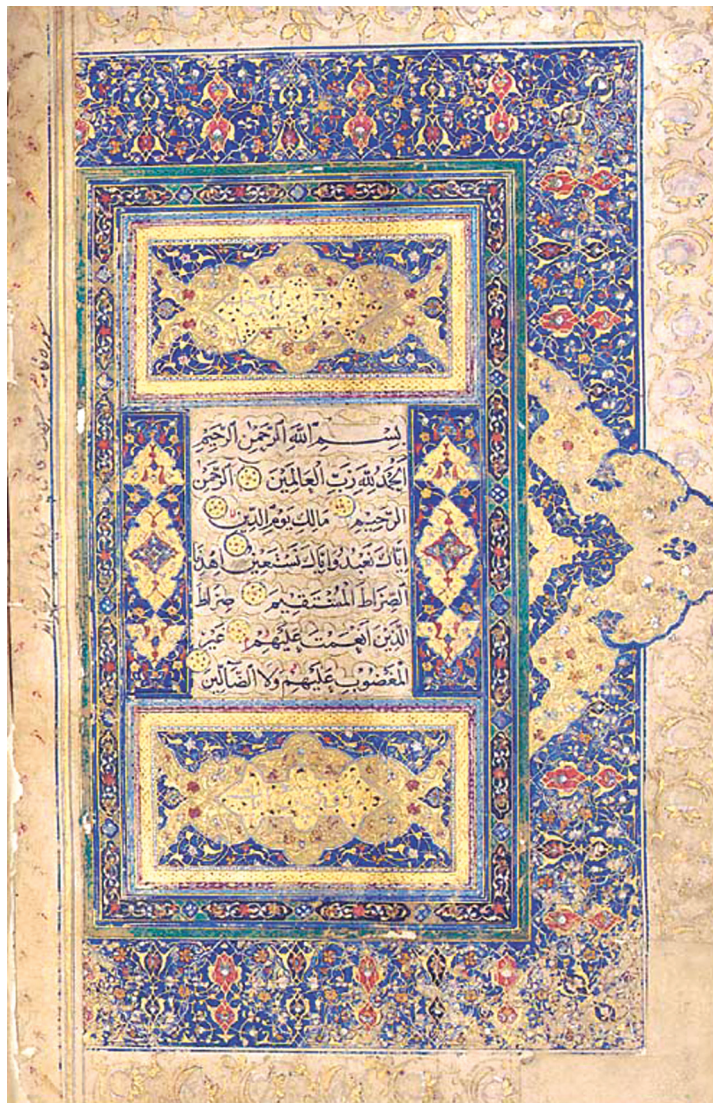 بِسْمِ اللَّهِ الرَّحْمَنِ الرَّحِيمِ
الْحَمْدُ لِلَّهِ رَبِّ الْعَالَمِينَ الرَّحْمَنِ
الرَّحِيمِ مَالِكِ يَوْمِ الدِّينِ
اِيَّاكَ نَعْبُدُ وَاِيَّاكَ نَسْتَعِينُ اِهْدِنَا
الصِّرَاطَ الْمُسْتَقِيمَ صِرَاطَ
الَّذِينَ اَنْعَمْتَ عَلَيْهِمْ غَيْرِ
الْمَغْضُوبِ عَلَيْهِمْ وَلَا الضَّآلِّينَ